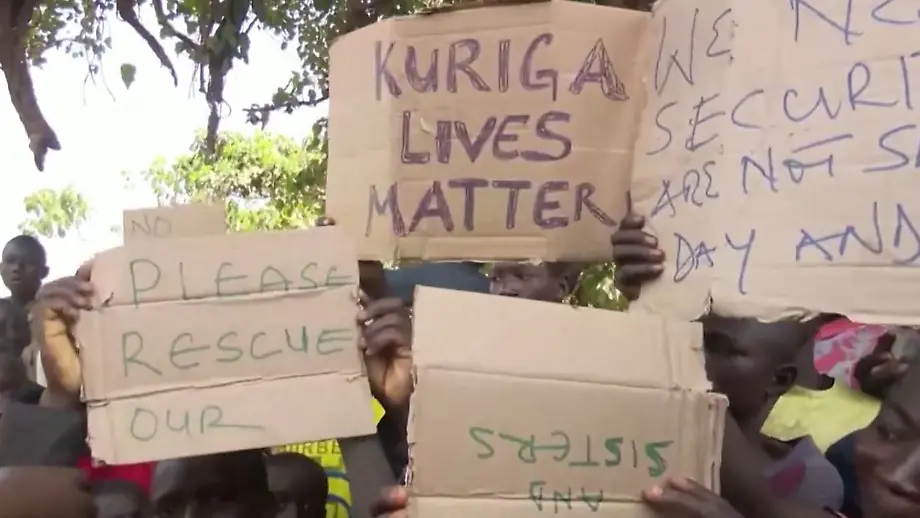 KURIGA
LIVES
MATTER
WE
SECURI
ARE NOT SA
DAY AND
NO
PLEASE
RESCUE
OUR
AND
SISTERS